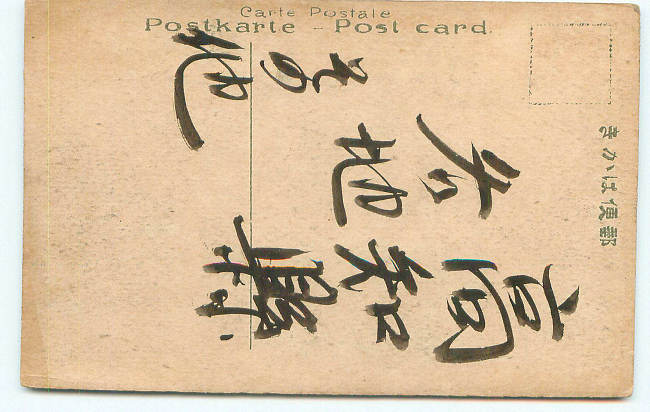 Carte Postale
Postkarte – Post card.
きかは便郵
高知縣
各地
その他